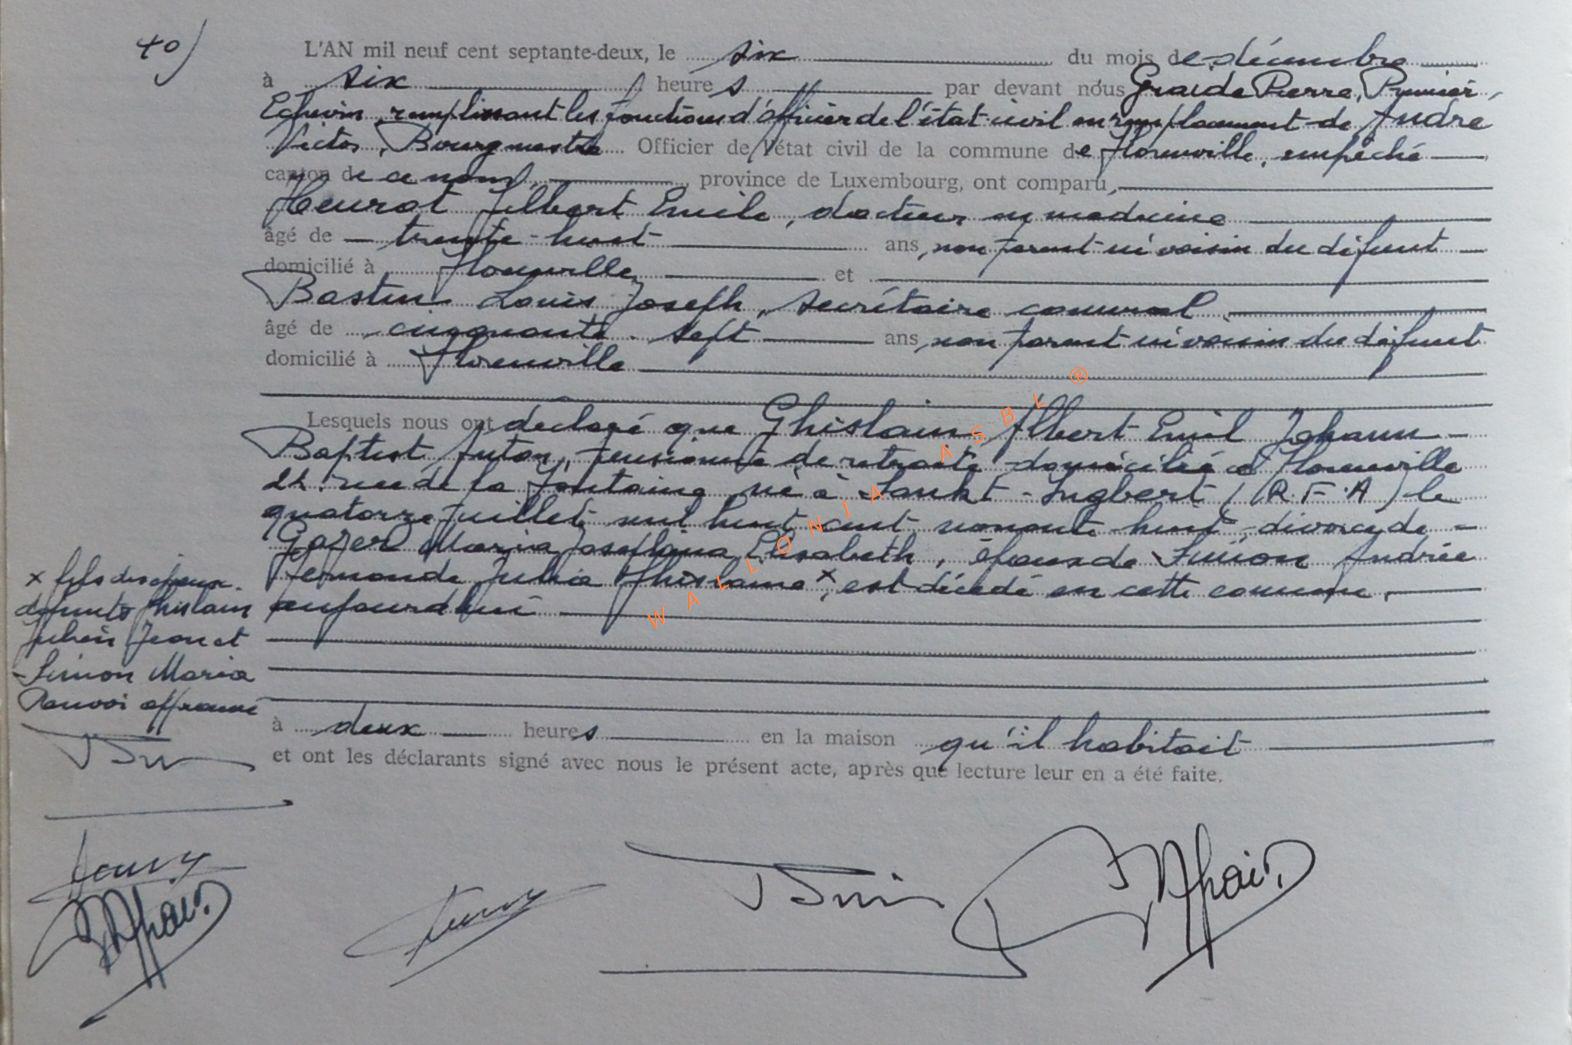 40)
L'AN mil neuf cent septante-deux, le six du mois de décembre
à six heures par devant nous Graide Pierre, Premier
Echevin, remplissant les fonctions d'officier de l'état civil en remplacement de André
Victor, Bourgmestre Officier de l'état civil de la commune de Florenville, empêché
canton de ce nom, province de Luxembourg, ont comparu,
Albert Emile, docteur en médecine
âgé de trente-huit ans, non parent ni voisin du défunt
domicilié à Florenville et
Bastin Louis Joseph, secrétaire communal
âgé de cinquante-sept ans, non parent ni voisin du défunt
domicilié à Florenville
Lesquels nous ont déclaré que Ghislain, Albert Emil Johann
Baptist Anton, pensionné de retraite domicilié à Florenville
rue de la Fontaine, né à Sankt-Ingbert (R.F.A) le
quatorze juillet mil huit cent nonante-huit, divorcé de
Maria Josephina Elisabeth, époux de Simon Andrée
Fernande Julia Ghislaine x, est décédé en cette commune,
aujourd'hui
x fils des époux
défunts Ghislain
Julien Jean et
Simon Maria
Renvoi approuvé
à deux heures en la maison qu'il habitait
et ont les déclarants signé avec nous le présent acte, après que lecture leur en a été faite.
WALLONIA ASBL ®